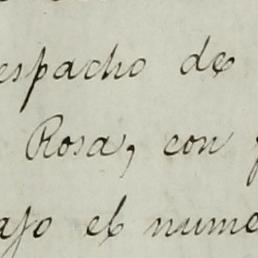 espacho de
Rosa, con
ajo el nume